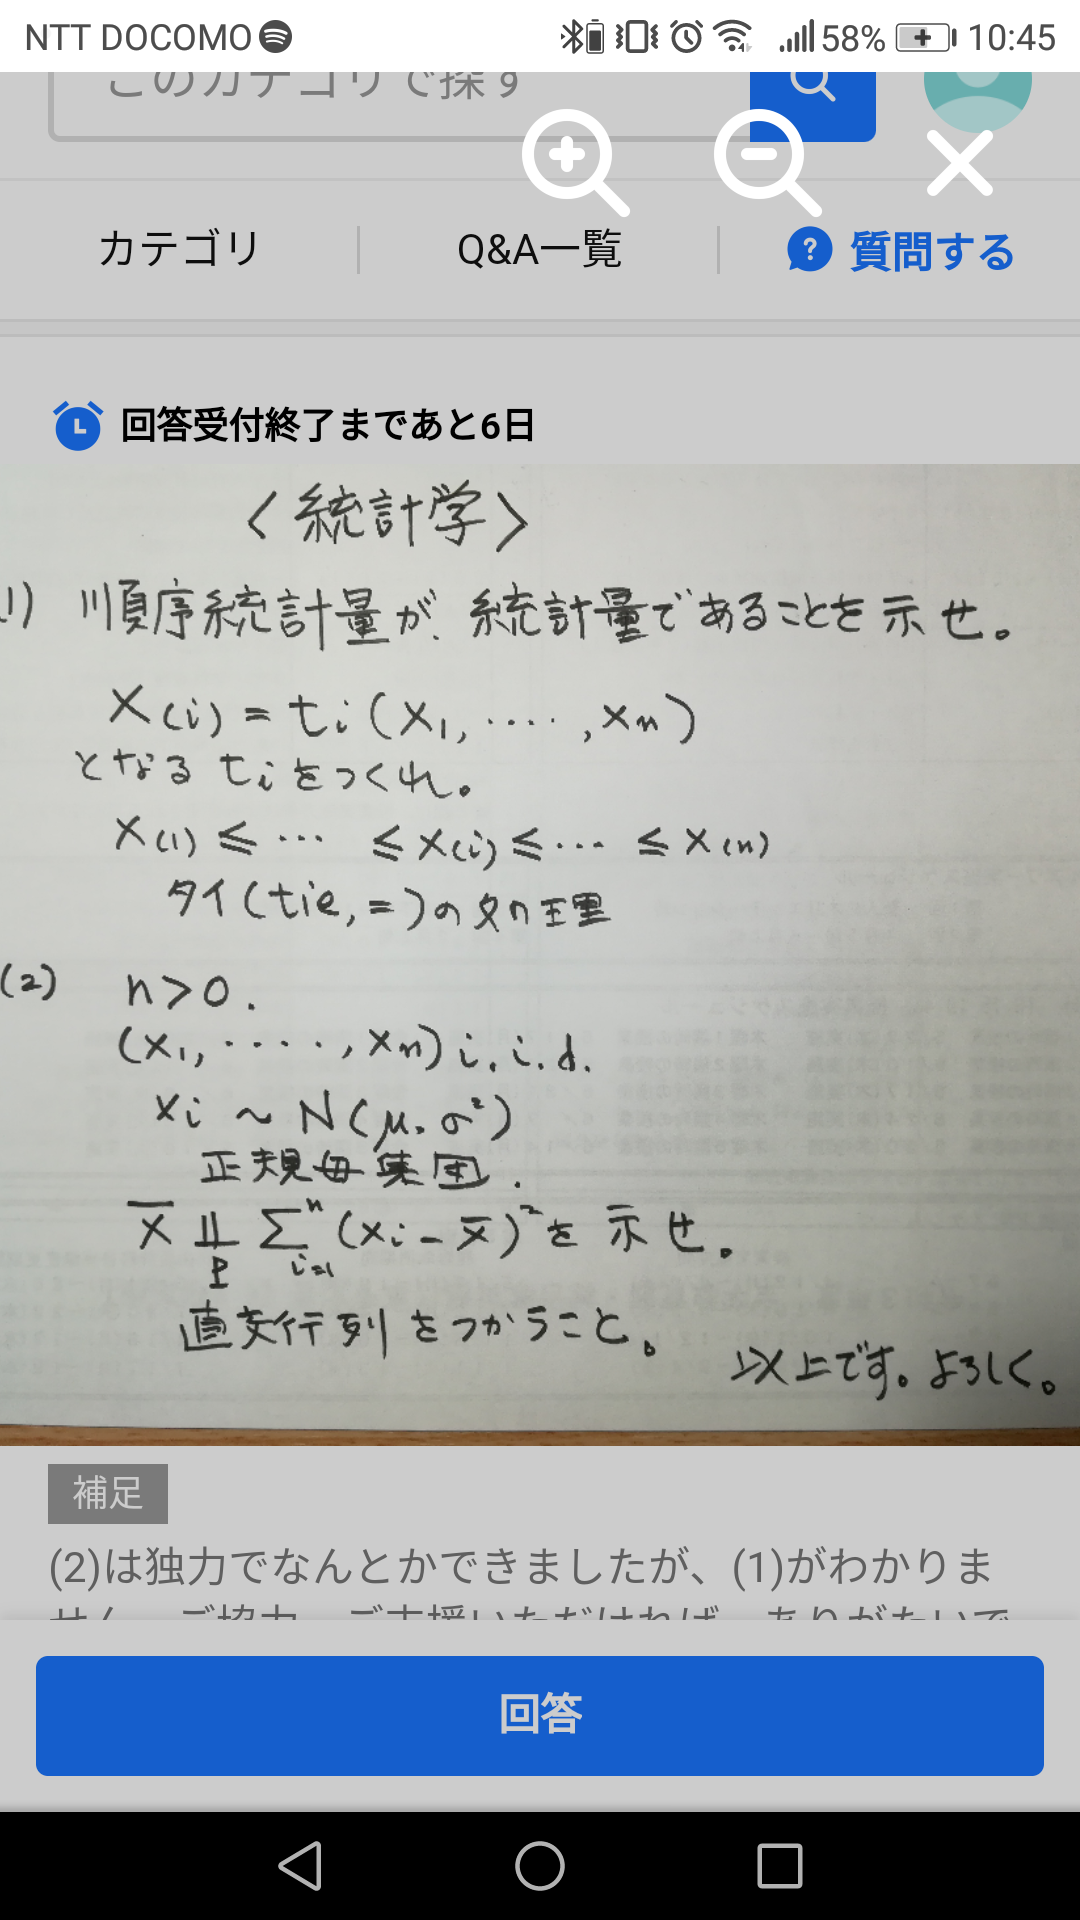 NTT DOCOMO 58% 10:45
このカテゴリで探す
カテゴリ Q&A一覧 質問する
回答受付終了まであと6日
〈統計学〉
(1) 順序統計量が、統計量であることを示せ。
X(i) = ti(X1, ‥‥, Xn)
となるtiをつくれ。
X(1) ≤ … ≤ X(i) ≤ … ≤ X(n)
タイ(tie, =)の処理
(2) n>0.
(X1, ‥‥, Xn) i.i.d.
Xi ~ N(μ, σ²)
正規母集団.
X̄ ⫫ Σ(Xi − X̄)²を示せ。
P i=1 n
直交行列をつかうこと。
以上です。よろしく。
補足
(2)は独力でなんとかできましたが、(1)がわかりま
せん。ご協力、ご支援いただければ、ありがたいで
回答